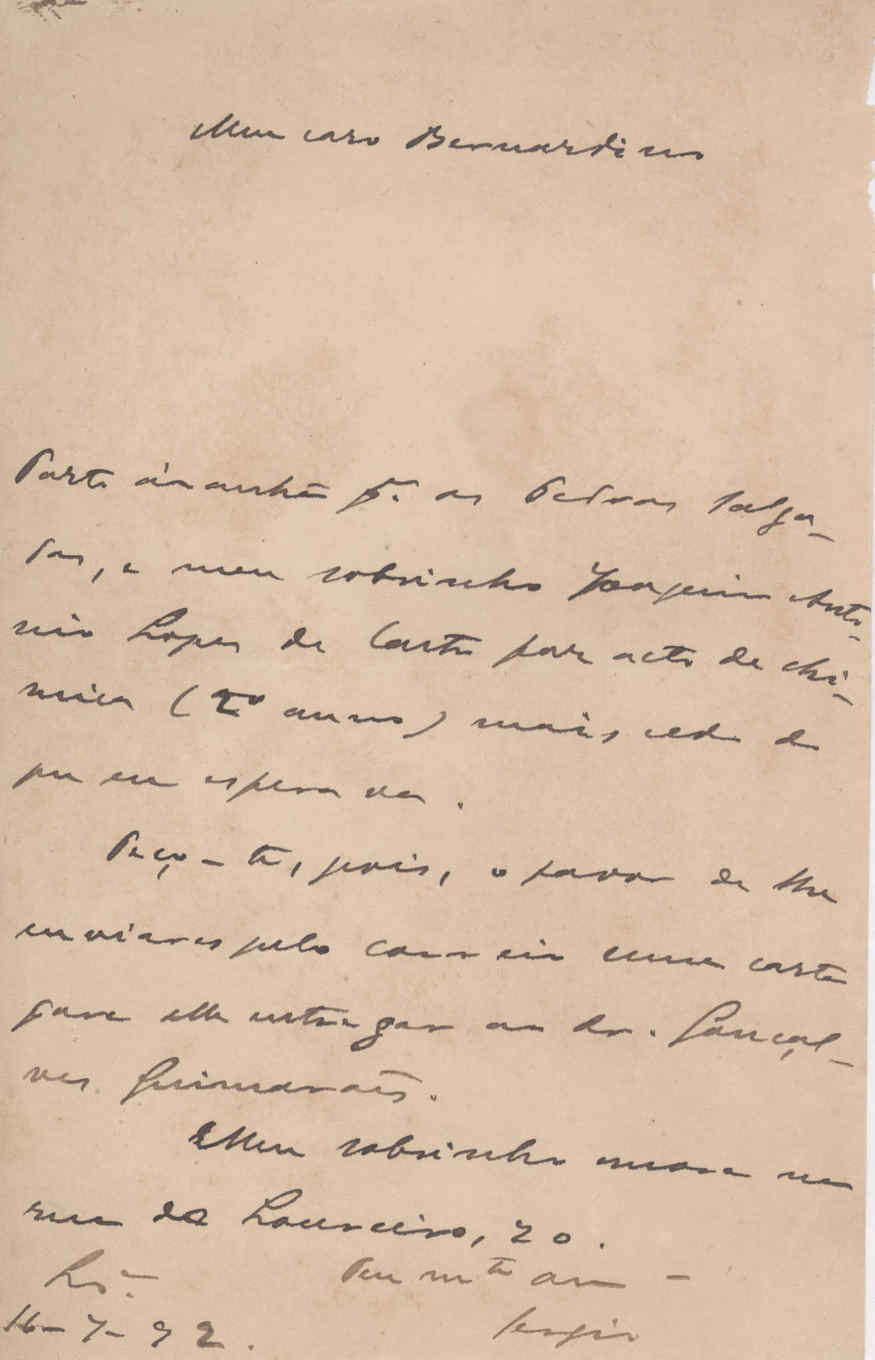 Meu caro Bernardino
Parto ámanhã p.ª as Pedras Salga-
das, e meu sobrinho Joaquim Anto-
nio Lopes de Castro faz acto de chi-
mica (2º anno) mais cedo do
que eu esperava.
Peço-te, pois, o favor de lhe
enviares pelo correio uma carta
para elle entregar ao dr. Gonçal-
ves Guimarães.
Meu sobrinho mora na
rua do Loureiro, 20.
Teu m.to am.
16-7-92.
Sergio